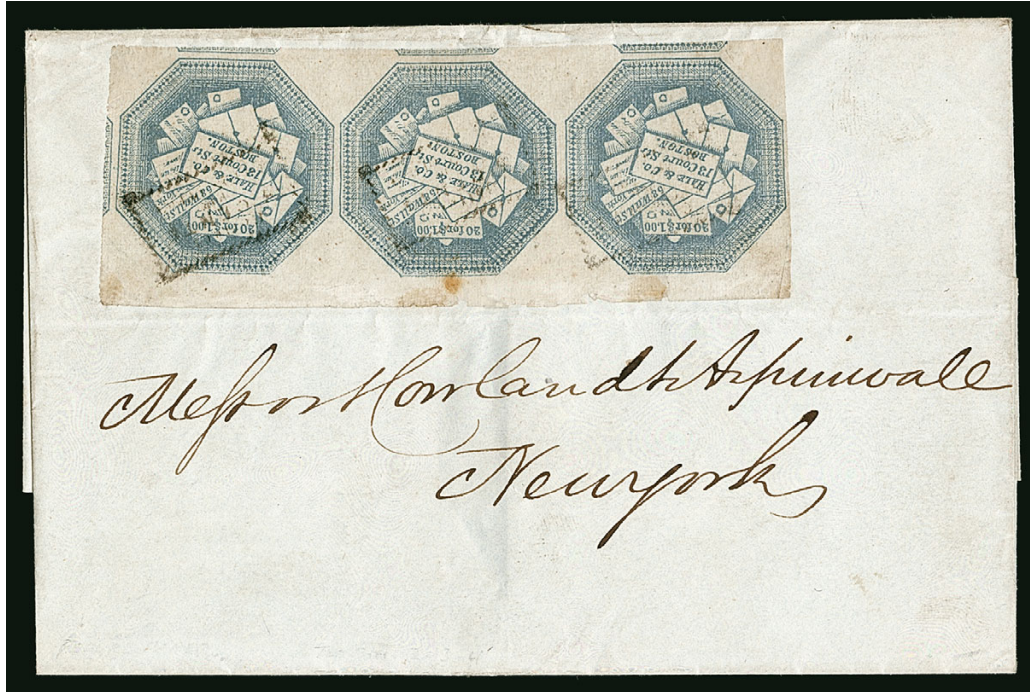 HALE & CO.
13 Court St.
BOSTON.
20 for $1.00
HALE & CO.
13 Court St.
BOSTON.
20 for $1.00
HALE & CO.
13 Court St.
BOSTON
20 for $1.00
Messrs Howland & Aspinwall
New york